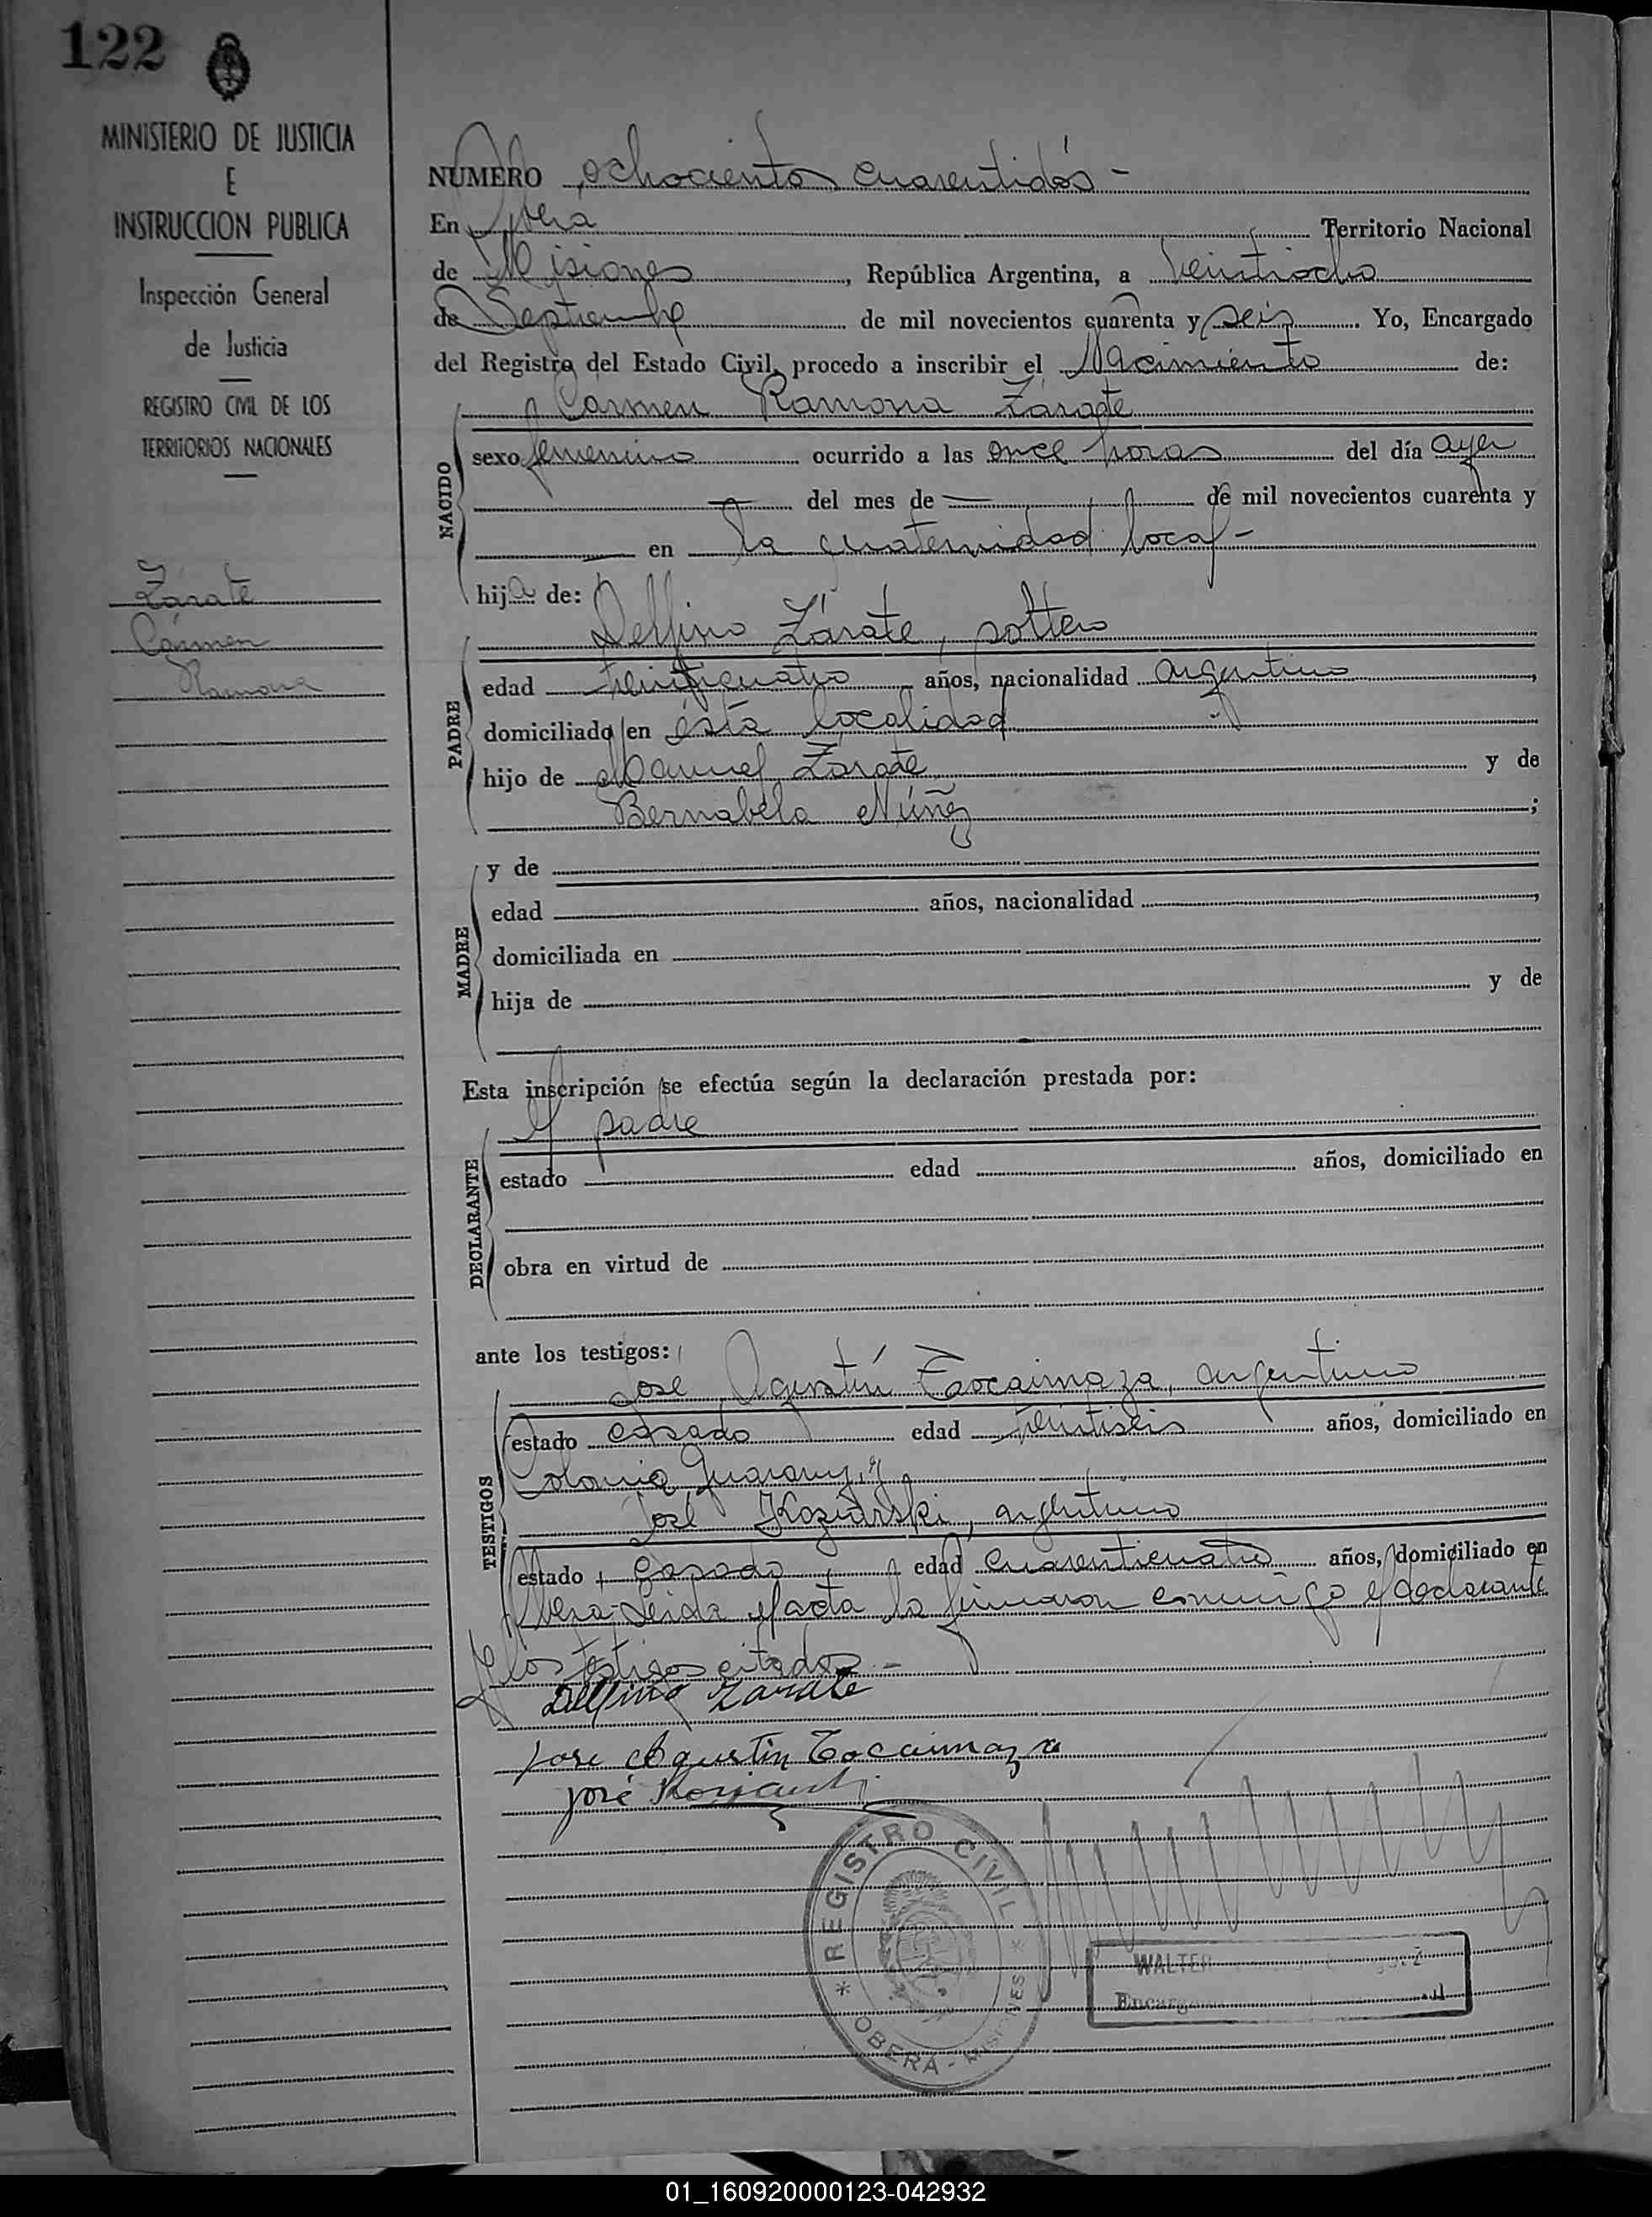 122
MINISTERIO DE JUSTICIA
E
INSTRUCCION PUBLICA
Inspección General
de Justicia
REGISTRO CIVIL DE LOS
TERRITORIOS NACIONALES
Zárate
Cármen
Ramona
NUMERO ochocientos cuarentidós -
En Oberá Territorio Nacional
de Misiones, República Argentina, a veintiocho
de Septiembre de mil novecientos cuarenta y seis. Yo, Encargado
del Registro del Estado Civil, procedo a inscribir el Nacimiento de:
Carmen Ramona Zarate
NACIDO
sexo femenino ocurrido a las once horas del día ayer
— del mes de — de mil novecientos cuarenta y
— en la maternidad local -
hija de:
Delfino Zárate, soltero
PADRE
edad treinticuatro años, nacionalidad argentino,
domiciliado en ésta localidad
hijo de Manuel Zárate y de
Bernabela Núñez;
MADRE
y de
edad años, nacionalidad ,
domiciliada en
hija de y de
Esta inscripción se efectúa según la declaración prestada por:
El padre
DECLARANTE
estado edad años, domiciliado en
obra en virtud de
ante los testigos:
José Agustín Tocaimaza, argentino
TESTIGOS
estado casado edad treintiseis años, domiciliado en
Colonia Guarany, y
José argentino
estado casado edad cuarenticuatro años, domiciliado en
Oberá-Leida el acta la firmaron conmigo el declarante
y los testigos citados -
Delfino Zarate
Jose Agustin Tocaimaza
José
REGISTRO CIVIL
* OBERÁ - MISIONES *
WALTER
01_160920000123-042932